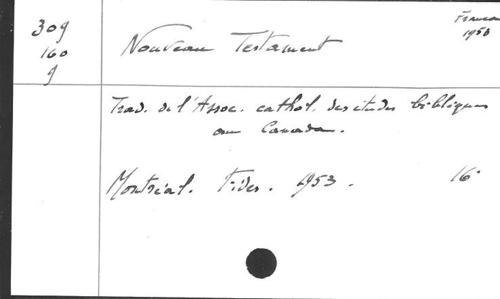 309
160
g
Nouveau Testament
1950
Trad. de l'Assoc. cathol. des études bibliques
au Canada.
Montréal. Fides. 1953. 16°